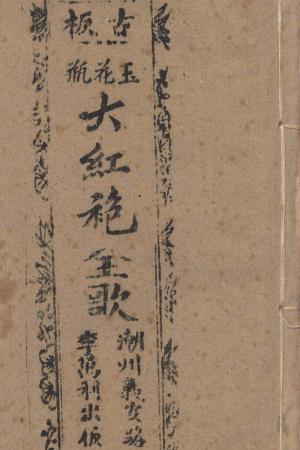 古板
玉花瓶
大紅袍全歌
潮州義安路
李萬利出版